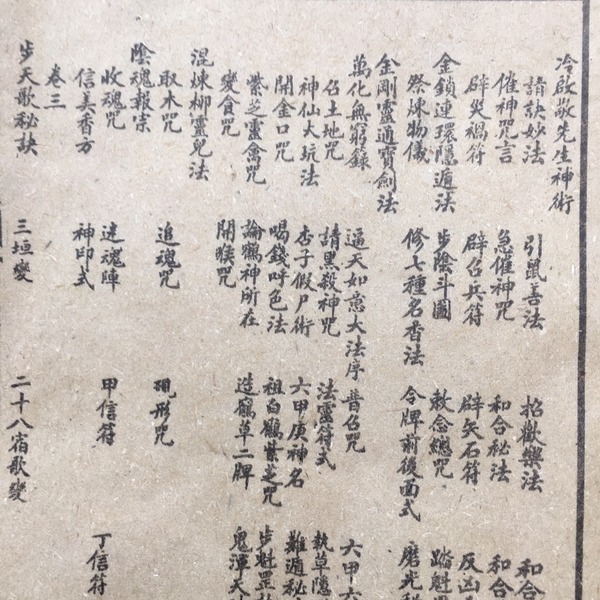 冷啟敬先生神術
請訣妙法 引鼠善法 招歡樂法 和合
催神咒言 急催神咒 和合秘法 和合
辟災禍符 辟召兵符 辟矢石符 反凶
金鎖連環隱遁法 步陰斗圖 敕念總咒 踏魁
祭煉物儀 修七種名香法 令牌前後面式 磨光
金剛靈通寶劍法
萬化無窮籙 逼天如意大法序 普召咒 六甲六
召土地咒 請黑殺神咒 法靈符式 執草隱
神仙大坑法 杏子假尸術 六甲庚神名 難遁秘
開金口咒 喝錢呼色法 祖白鶴紫芝咒 步魁罡
紫芝靈禽咒 論鶴神所在 造鶴草二牌 鬼渾天
變食咒 開喉咒
混煉柳靈兒法
取木咒 追魂咒 現形咒
陰魂報宗
收魂咒 迷魂陣 甲信符 丁信符
信美香方 神印式
卷三
步天歌秘訣 三垣變 二十八宿歌變